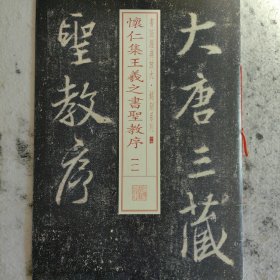 大唐三藏
聖教序
懷仁集王羲之書聖教序